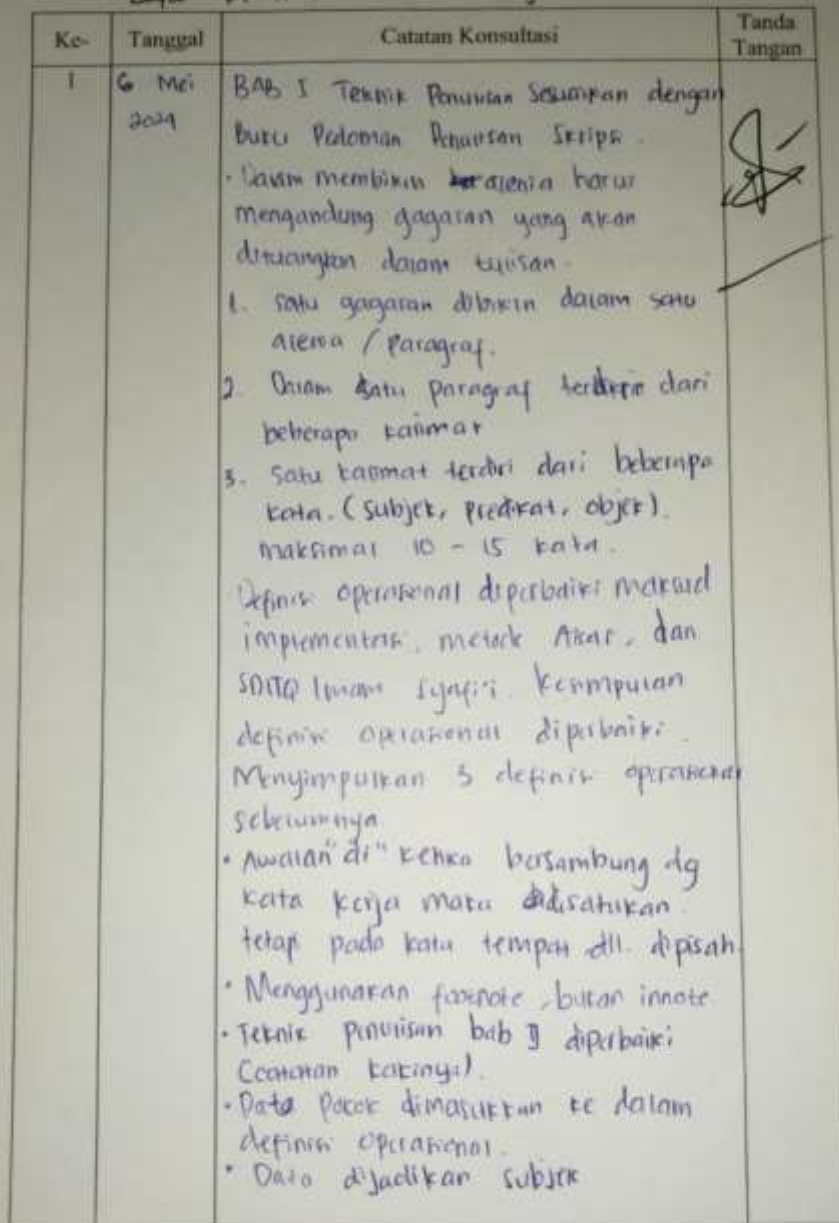 Ke-
Tanggal
Catatan Konsultasi
Tanda
Tangan
1
6 Mei
2024
BAB I Teknik Penulisan Sesuaikan dengan
Buku Pedoman Penulisan Skripsi.
• Dalam membikin alenia harus
mengandung gagasan yang akan
dituangkan dalam tulisan.
1. Satu gagasan dibikin dalam satu
alenia / Paragraf.
2. Dalam satu paragraf terdiri dari
beberapa kalimat
3. Satu kalimat terdiri dari beberapa
kata. (subjek, predikat, objek).
maksimal 10 - 15 kata.
Definisi operasional diperbaiki maksud
implementasi, metode Akar, dan
SDITQ Imam Syafi'i. Kesimpulan
definisi operasional diperbaiki.
Menyimpulkan 3 definisi operasional
sebelumnya
• Awalan "di" ketika bersambung dg
kata kerja maka disatukan.
tetapi pada kata tempat dll. dipisah.
• Menggunakan footnote, bukan innote
• Teknik penulisan bab I diperbaiki
(catatan kakinya).
• Data Pokok dimasukkan ke dalam
definisi operasional.
• Data dijadikan subjek